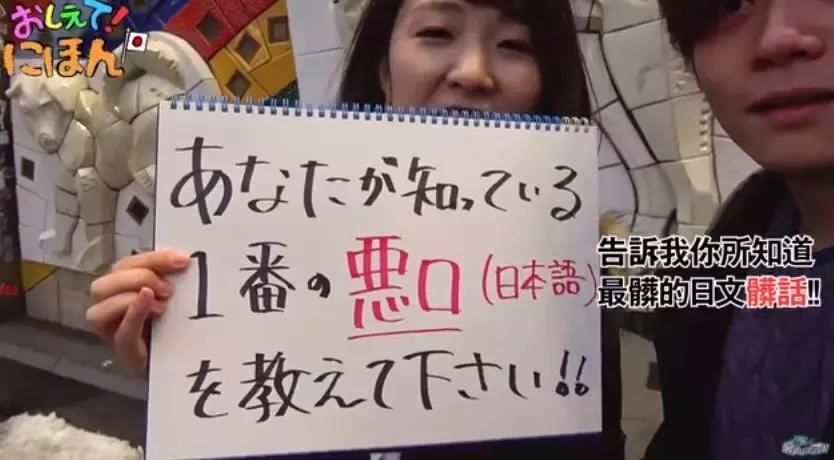 おしえて!
にほん
あなたが知っている
1番の悪口(日本語)
を教えて下さい!!
告訴我你所知道
最髒的日文髒話!!